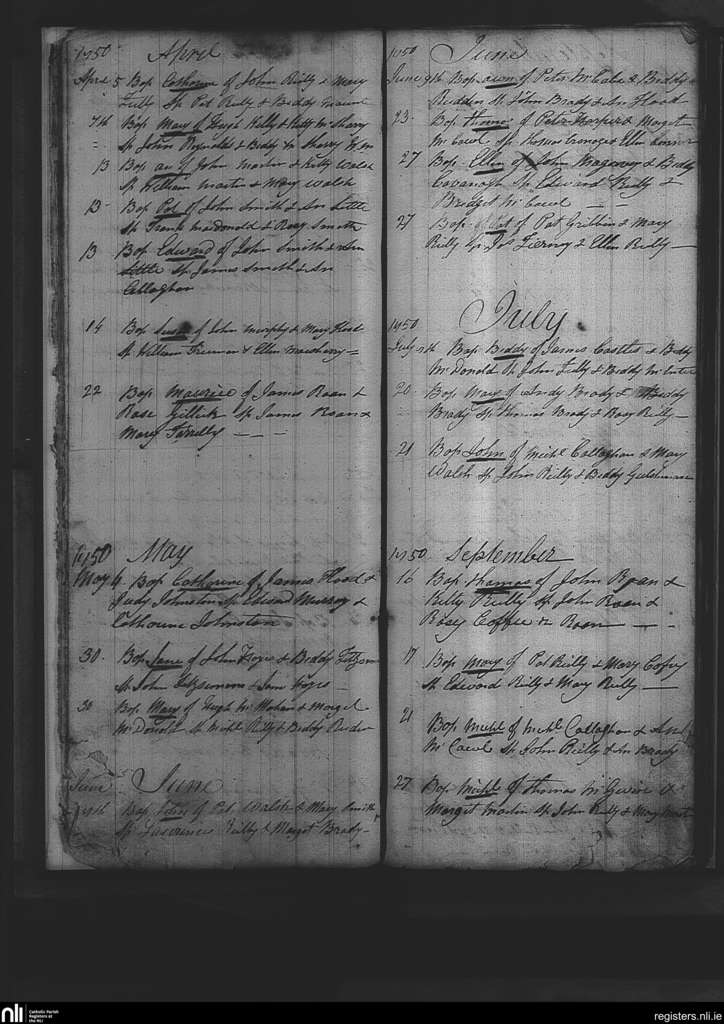 1750 April
April 5 Bap Catharine of John Reilly & Mary
Tully Sp Pat Reilly & Biddy
7th Bap Mary of Hugh Kelly & Kitty Mc Sharry
Sp John Reynolds & Biddy Mc Sharry
13 Bap an of John Martin & Kitty Walsh
Sp William Martin & Mary Walsh
13 Bap Pat of John Smith & An Little
Sp Frank MacDonald & Rosy Smith
13 Bap Edward of John Smith & An
Little Sp James Smith & An
Callaghan
14 Bap Susan of John Murphy & Mary Flood
Sp William Freeman & Ellen
22 Bap Maurice of James Roan &
Rose Sp James Roan &
Mary Farrelly
1750 May
May 4 Bap Catharine of James Flood &
Judy Johnston Sp Edward Murray &
Catharine Johnston
30 Bap Jane of John & Biddy
Sp John Fitzsimons & Jane
30 Bap Mary of Hugh Mc Mahan & Margel
Mc Donald Sp Michl Reilly & Biddy
June June
Bap John of Pat Walsh & Mary Smith
Sp Lawrence Reilly & Margot Brady
1750 June
June 9th Bap own of Peter McCabe & Biddy
Sp John Brady & An Flood
23 Bap of Peter Harper & Margot
Mc Sp Thomas & Ellen
27 Bap Ellen of John & Biddy
Cavanagh Sp Edward Reilly &
Bridget Mc
27 Bap of Pat of Pat Gribbin & Mary
Reilly Sp Jas Tierny & Ellen Reilly
1750 July
July Bap Biddy of James Castles & Biddy
McDonald Sp John Tully & Biddy
20 Bap Mary of Andy Brady & Biddy
Brady Sp Thomas Brady & Rosy Reilly
21 Bap John of Michl Callaghan & Mary
Walsh Sp John Reilly & Biddy
1750 September
16 Bap Thomas of John Roan &
Kitty Reilly Sp John Roan &
Rosey Coffee or Roan
17 Bap Mary of Pat Reilly & Mary
Sp Edward Reilly & Mary Reilly
21 Bap Michl of Michl Callaghan &
Mc Sp John Reilly & An Brady
27 Bap Michl of Thomas McGuire &
Margit Martin Sp John Reilly & Mary
nli Catholic Parish
Registers at
the NLI
registers.nli.ie